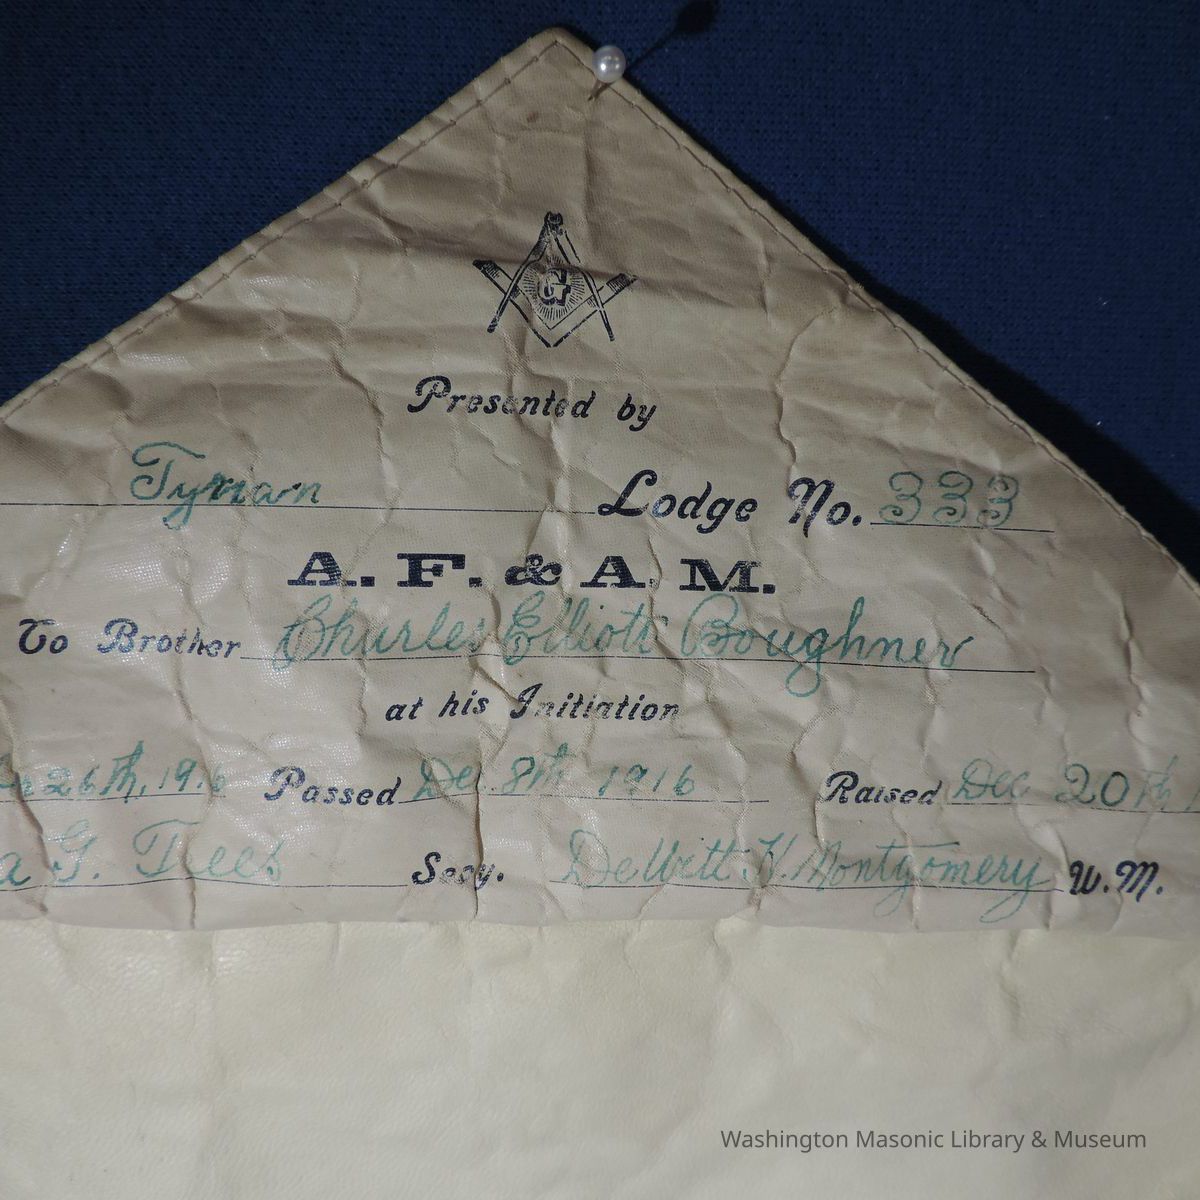 G
Presented by
Tyrian Lodge No. 333
A. F. & A. M.
To Brother Charles Elliott Boughner
at his Initiation
26th, 1916 Passed Dec. 8th 1916 Raised Dec 20th
a G. Trees Secy. DeWitt H. Montgomery W. M.
Washington Masonic Library & Museum